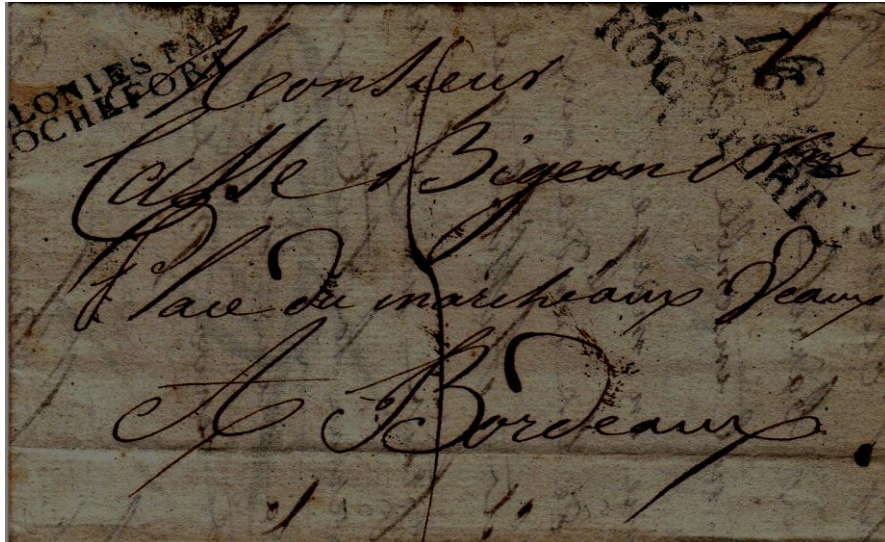 LONIES PAR
OCHEFORT
16
Monsieur
Casse Bigeon
Place du marcheaux Veaux
A Bordeaux